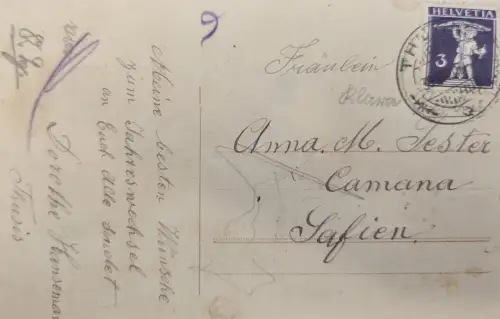 Meine besten Wünsche
zum Jahreswechsel
an Euch Alle sendet
Dorothe Hansemann
Thusis
Fräulein
Anna. M. Tester
Camana
Safien.
HELVETIA
3
9